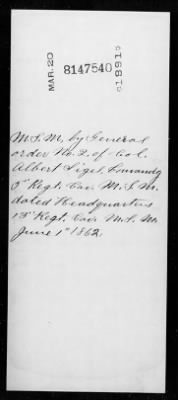 MAR. 20
8147540
1891
M.S.M. by General
order No. 2. of Col.
Albert Sigel, Comandg
5" Regt. Cav. M.S.M.
dated Headquarters
13" Regt. Cav. M.S.M.
June 1" 1862